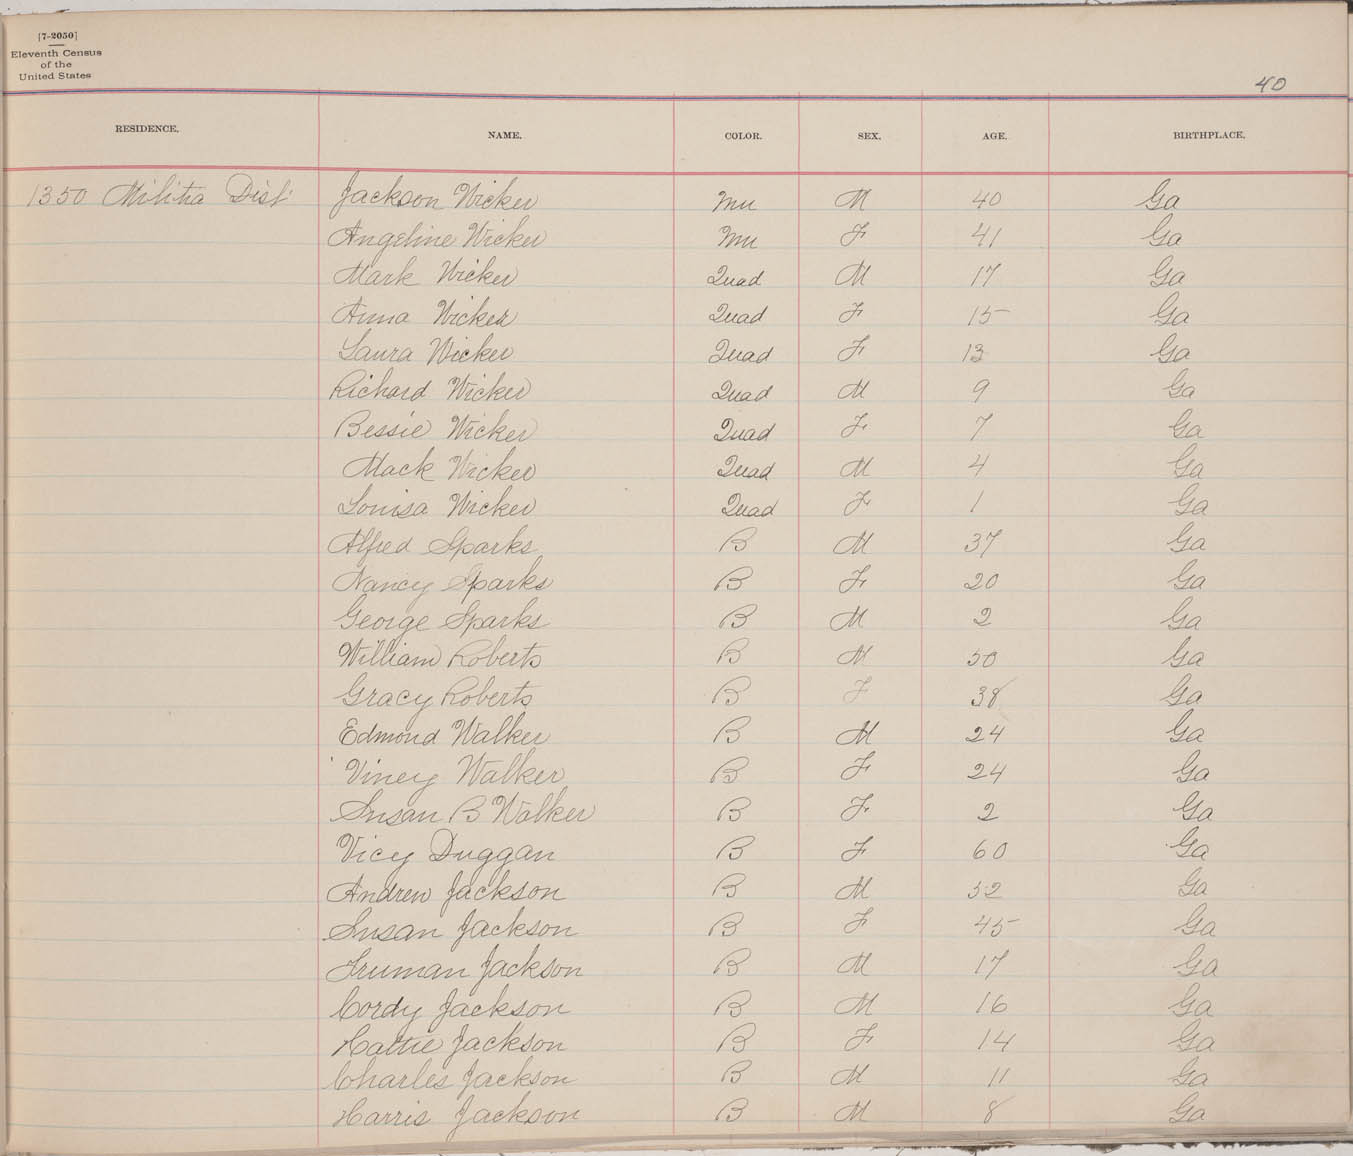 [7-2050]
Eleventh Census
of the
United States
40
RESIDENCE. NAME. COLOR. SEX. AGE. BIRTHPLACE.
1350 Militia Dist Jackson Wicker Mu M 40 Ga
Angeline Wicker Mu F 41 Ga
Mark Wicker Quad M 17 Ga
Anna Wicker Quad F 15 Ga
Laura Wicker Quad F 13 Ga
Richard Wicker Quad M 9 Ga
Bessie Wicker Quad F 7 Ga
Mack Wicker Quad M 4 Ga
Louisa Wicker Quad F 1 Ga
Alfred Sparks B M 37 Ga
Nancy Sparks B F 20 Ga
George Sparks B M 2 Ga
William Roberts B M 50 Ga
Gracy Roberts B F 38 Ga
Edmond Walker B M 24 Ga
Viney Walker B F 24 Ga
Susan B Walker B F 2 Ga
Vicy Duggan B F 60 Ga
Andrew Jackson B M 52 Ga
Susan Jackson B F 45 Ga
Truman Jackson B M 17 Ga
Cordy Jackson B M 16 Ga
Hattie Jackson B F 14 Ga
Charles Jackson B M 11 Ga
Harris Jackson B M 8 Ga